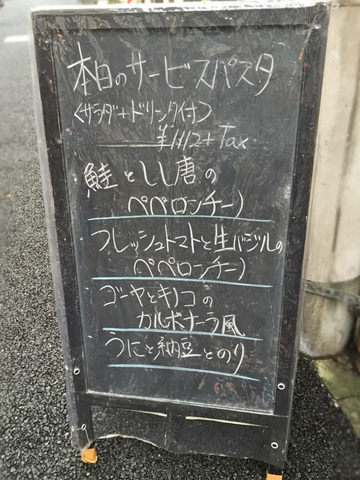 本日のサービスパスタ
〈サラダ+ドリンク付〉
¥1112+Tax
鮭としし唐の
ペペロンチーノ
フレッシュトマトと生バジルの
ペペロンチーノ
ゴーヤとキノコの
カルボナーラ風
うにと納豆とのり